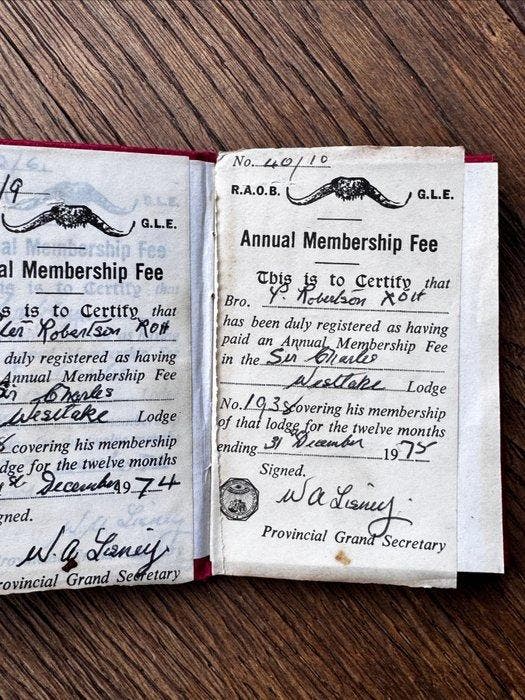 /9
G.L.E.
al Membership Fee
s is to Certify that
Robertson ROH
duly registered as having
Annual Membership Fee
Sir Charles
Westlake Lodge
covering his membership
dge for the twelve months
December 1974
gned.
W. A. Lisney
rovincial Grand Secretary
No. 40/10
R.A.O.B. G.L.E.
Annual Membership Fee
This is to Certify that
Bro. Y. Robertson ROH
has been duly registered as having
paid an Annual Membership Fee
in the Sir Charles
Westlake Lodge
No. 1938 covering his membership
of that lodge for the twelve months
ending 31 December 1975
Signed.
W A Lisney.
Provincial Grand Secretary